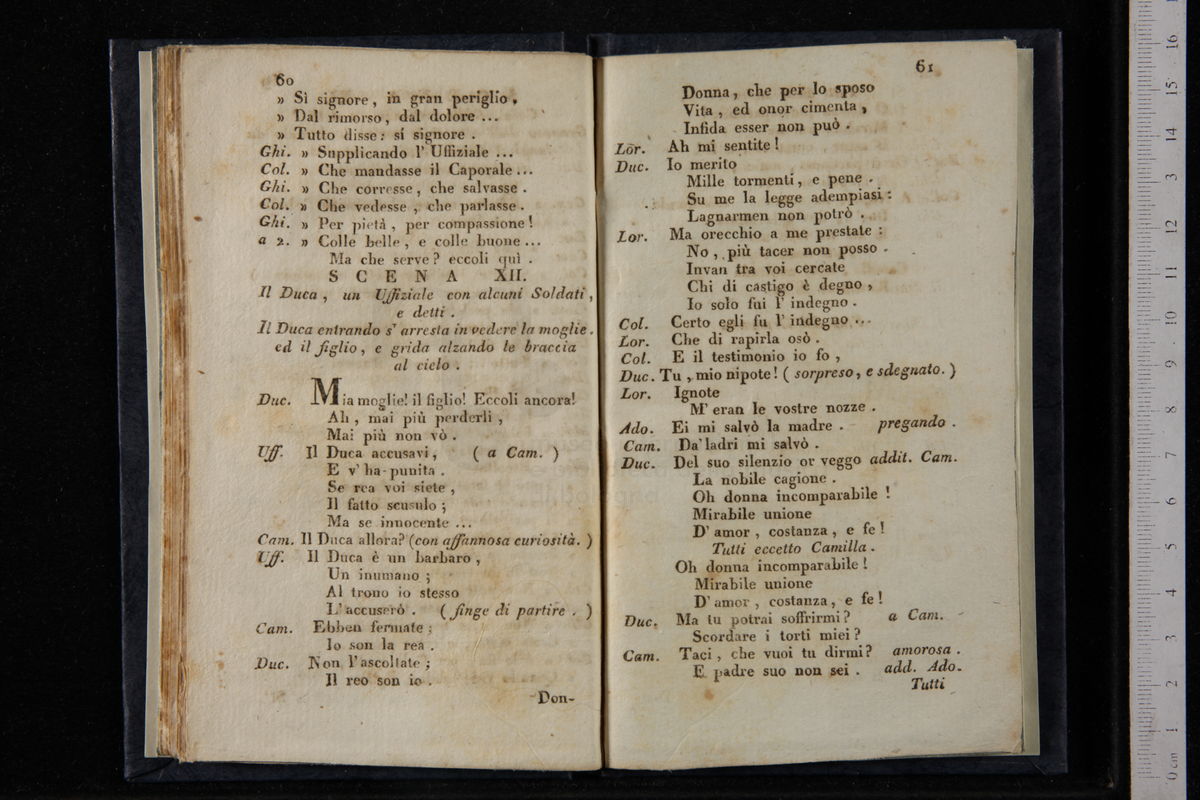 60
» Sì signore, in gran periglio,
» Dal rimorso, dal dolore ...
» Tutto disse: sì signore.
Ghi. » Supplicando l' Uffiziale ...
Col. » Che mandasse il Caporale ...
Ghi. » Che corresse, che salvasse.
Col. » Che vedesse, che parlasse.
Ghi. » Per pietà, per compassione!
a 2. » Colle belle, e colle buone ...
Ma che serve? eccoli quì.
SCENA XII.
Il Duca, un Uffiziale con alcuni Soldati,
e detti.
Il Duca entrando s' arresta in vedere la moglie.
ed il figlio, e grida alzando le braccia
al cielo.
Duc. Mia moglie! il figlio! Eccoli ancora!
Ah, mai più perderli,
Mai più non vò.
Uff. Il Duca accusavi, ( a Cam. )
E v' ha-punita.
Se rea voi siete,
Il fatto scusulo;
Ma se innocente ...
Cam. Il Duca allora? (con affannosa curiosità. )
Uff. Il Duca è un barbaro,
Un inumano;
Al trono io stesso
L' accuserò. ( finge di partire. )
Cam. Ebben fermate;
Io son la rea.
Duc. Non l' ascoltate;
Il reo son io.
Don-
61
Donna, che per lo sposo
Vita, ed onor cimenta,
Infida esser non può.
Lor. Ah mi sentite!
Duc. Io merito
Mille tormenti, e pene.
Su me la legge adempiasi:
Lagnarmen non potrò.
Lor. Ma orecchio a me prestate:
No, più tacer non posso.
Invan tra voi cercate
Chi di castigo è degno,
Io solo fui l' indegno.
Col. Certo egli fu l' indegno ...
Lor. Che di rapirla osò.
Col. E il testimonio io fo,
Duc. Tu, mio nipote! ( sorpreso, e sdegnato. )
Lor. Ignote
M' eran le vostre nozze.
Ado. Ei mi salvò la madre. pregando.
Cam. Da' ladri mi salvò.
Duc. Del suo silenzio or veggo addit. Cam.
La nobile cagione.
Oh donna incomparabile!
Mirabile unione
D' amor, costanza, e fe!
Tutti eccetto Camilla.
Oh donna incomparabile!
Mirabile unione
D' amor, costanza, e fe!
Duc. Ma tu potrai soffrirmi? a Cam.
Scordare i torti miei?
Cam. Taci, che vuoi tu dirmi? amorosa.
E padre suo non sei. add. Ado.
Tutti
0 cm 1 2 3 4 5 6 7 8 9 10 11 12 13 14 15 16